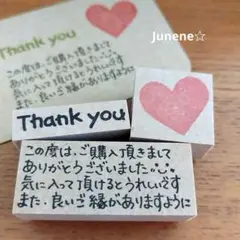 Junene☆
Thank you
この度は、ご購入頂きまして
ありがとうございました
気に入って頂けるとうれしいです
また、良いご縁がありますように
Thank you
この度は、ご購入頂きまして
ありがとうございました
気に入って頂けるとうれしいです
また、良いご縁がありますように